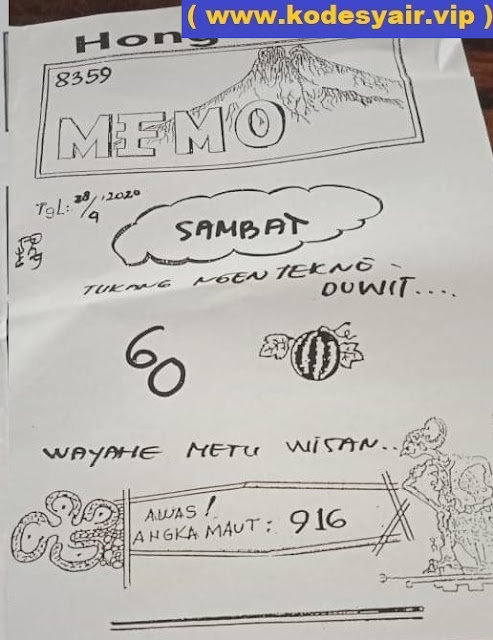 ( www.kodesyair.vip )
Hong
8359
MEMO
TgL: 28/9 '2020
SAMBAT
TUKANG NGENTEKNO -
DUWIT....
60
WAYAHE METU WISAN..
AWAS!
ANGKA MAUT: 916